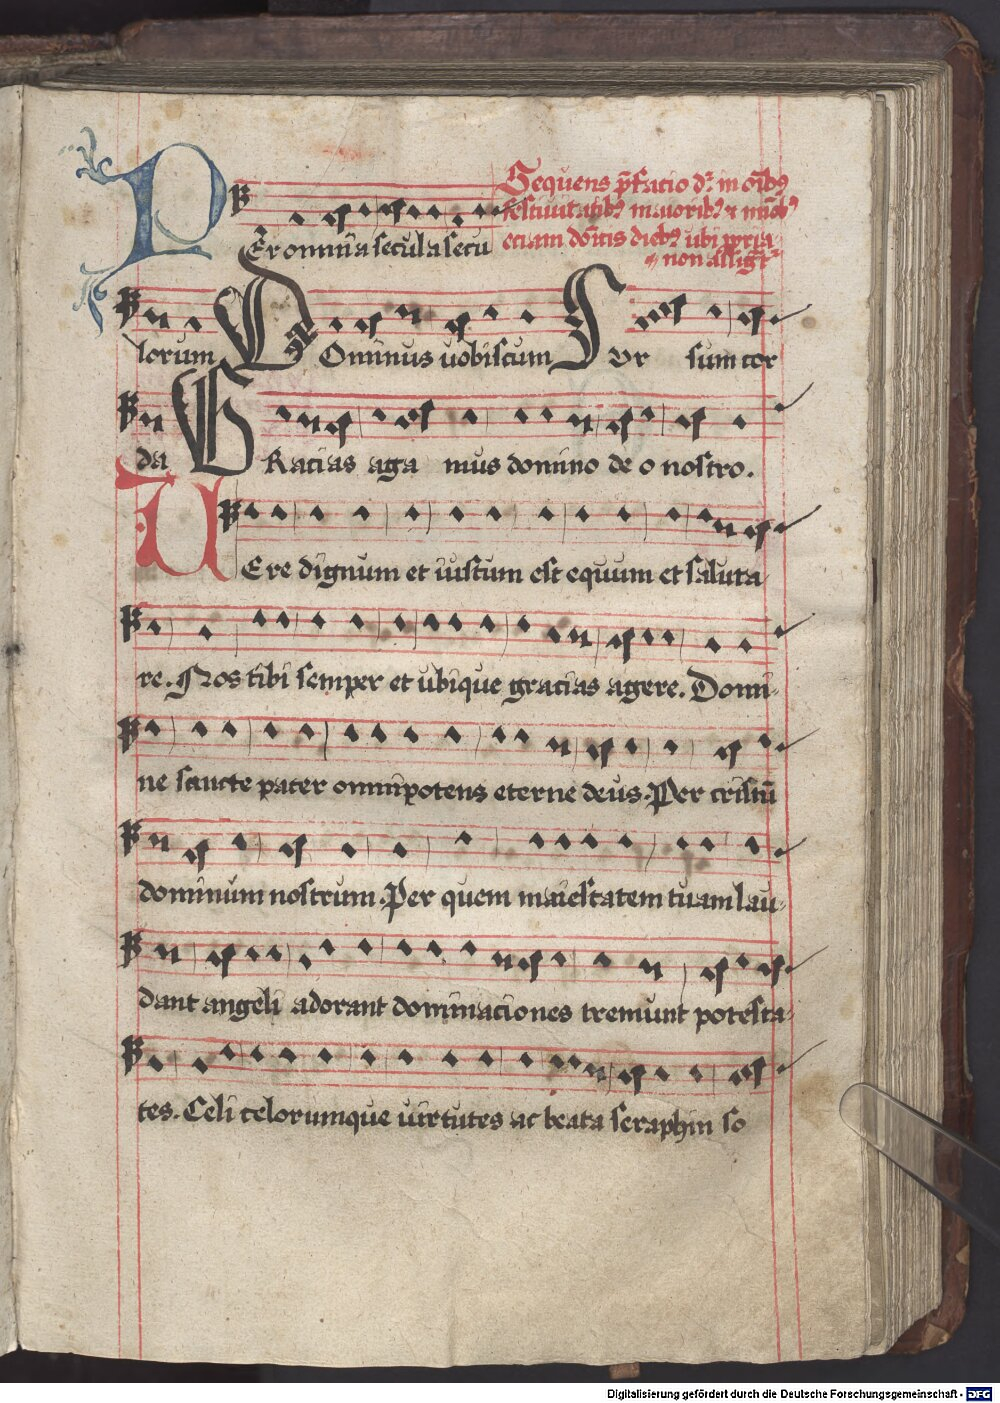 Sequens p̄fatio d̄r in oi̅bꝰ
festiuitatibꝰ maioribꝰ et mi̅obꝰ
etiam do̅icis diebꝰ ubi p̱pria
non assig̅tꝛ
PEr omnia secula secu
lorum DOminus uobiscum SVr sum cor
da GRacias aga mus domino de o nostro.
UEre dignum et iustum est equum et saluta
re. Nos tibi semper et ubique gracias agere. Domi-
ne sancte pater omnipotens eterne deus. Per cristū
dominum nostrum. Per quem maiestatem tuam lau-
dant angeli adorant dominaciones tremunt potesta-
tes. Celi celorumque uirtutes ac beata seraphin so
Digitalisierung gefördert durch die Deutsche Forschungsgemeinschaft - DFG